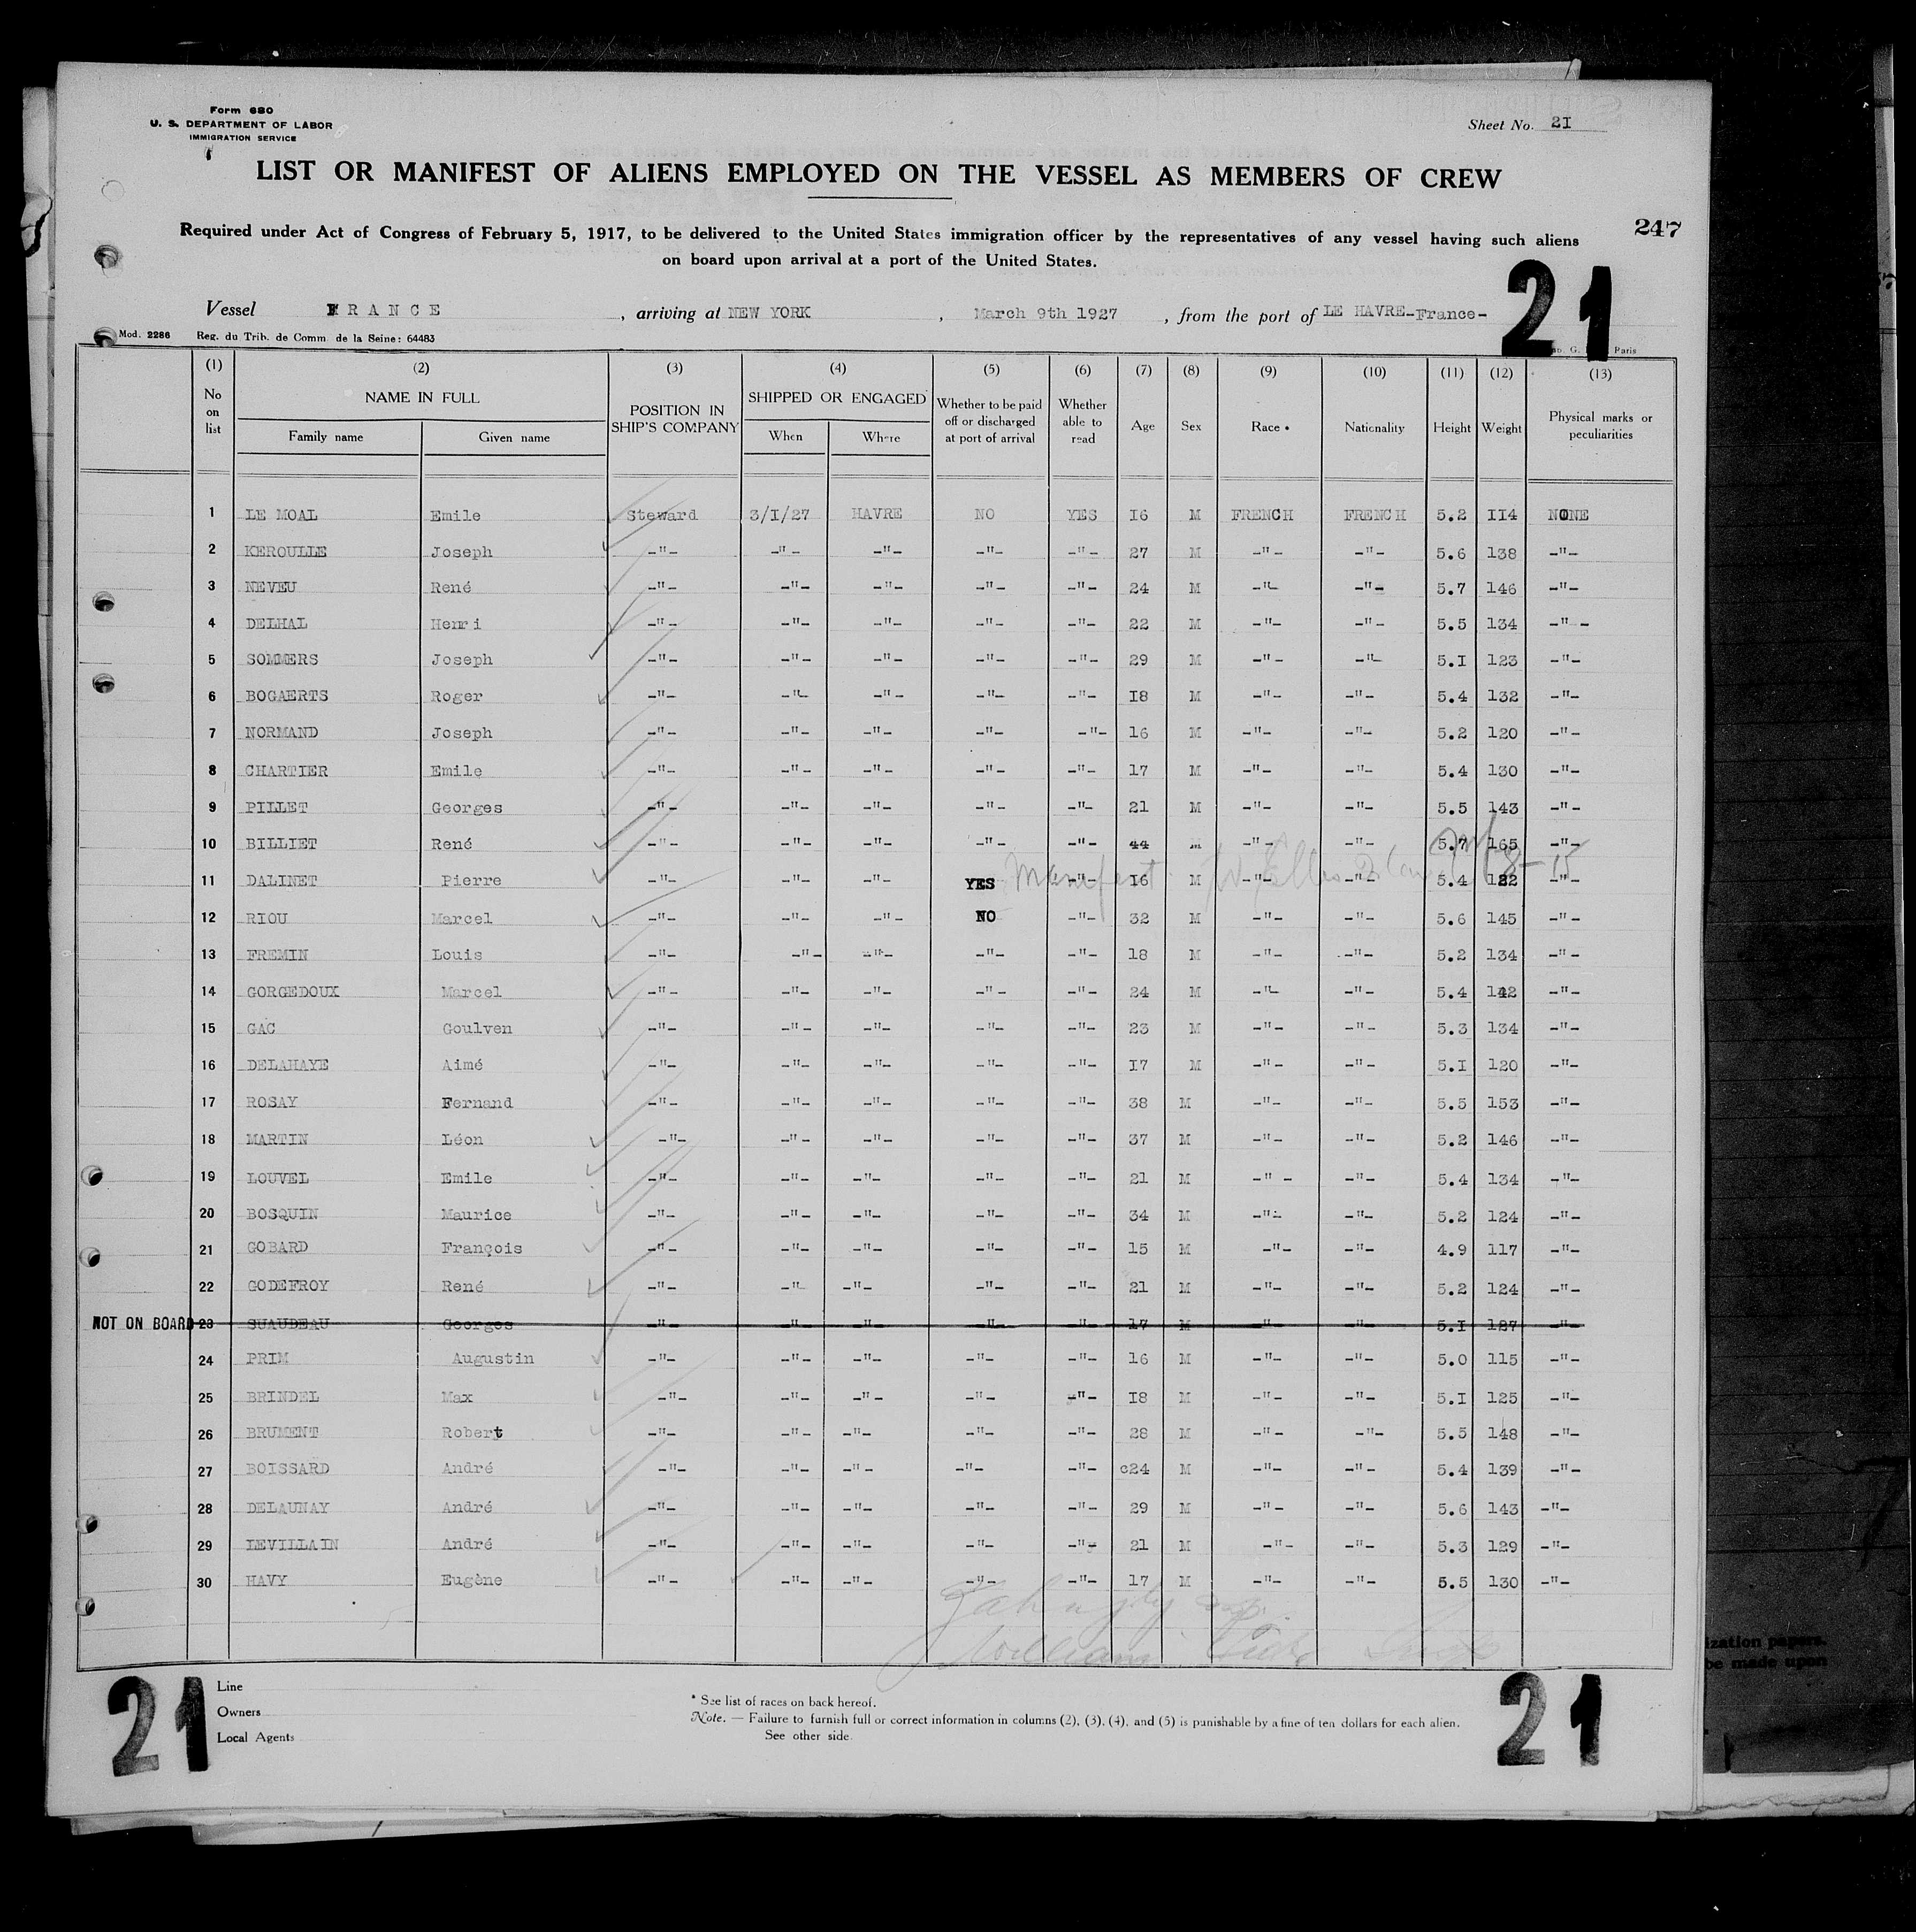 Form 680
U. S. DEPARTMENT OF LABOR
IMMIGRATION SERVICE
Sheet No. 2I
LIST OR MANIFEST OF ALIENS EMPLOYED ON THE VESSEL AS MEMBERS OF CREW
247
Required under Act of Congress of February 5, 1917, to be delivered to the United States immigration officer by the representatives of any vessel having such aliens
on board upon arrival at a port of the United States.
21
Vessel FRANCE , arriving at NEW YORK , March 9th 1927 , from the port of LE HAVRE-France-
Mod. 2286 Reg. du Trib. de Comm. de la Seine: 64483 Paris
(1) (2) (3) (4) (5) (6) (7) (8) (9) (10) (11) (12) (13)
No on list NAME IN FULL POSITION IN SHIP'S COMPANY SHIPPED OR ENGAGED Whether to be paid off or discharged at port of arrival Whether able to read Age Sex Race * Nationality Height Weight Physical marks or peculiarities
Family name Given name When Where
1 LE MOAL Emile Steward 3/I/27 HAVRE NO YES I6 M FRENCH FRENCH 5.2 II4 NONE
2 KEROULLE Joseph -"- -"- -"- -"- -"- 27 M -"- -"- 5.6 138 -"-
3 NEVEU René -"- -"- -"- -"- -"- 24 M -"- -"- 5.7 146 -"-
4 DELHAL Henri -"- -"- -"- -"- -"- 22 M -"- -"- 5.5 134 -"-
5 SOMMERS Joseph -"- -"- -"- -"- -"- 29 M -"- -"- 5.I 123 -"-
6 BOGAERTS Roger -"- -"- -"- -"- -"- I8 M -"- -"- 5.4 132 -"-
7 NORMAND Joseph -"- -"- -"- -"- -"- 16 M -"- -"- 5.2 120 -"-
8 CHARTIER Emile -"- -"- -"- -"- -"- 17 M -"- -"- 5.4 130 -"-
9 PILLET Georges -"- -"- -"- -"- -"- 21 M -"- -"- 5.5 143 -"-
10 BILLIET René -"- -"- -"- -"- -"- 44 M -"- -"- 5.7 165 -"-
11 DALINET Pierre -"- -"- -"- YES -"- I6 M -"- -"- 5.4 122 -"-
Manifest
12 RIOU Marcel -"- -"- -"- NO -"- 32 M -"- -"- 5.6 145 -"-
13 FREMIN Louis -"- -"- -"- -"- -"- 18 M -"- -"- 5.2 134 -"-
14 GORGEDOUX Marcel -"- -"- -"- -"- -"- 24 M -"- -"- 5.4 142 -"-
15 GAC Goulven -"- -"- -"- -"- -"- 23 M -"- -"- 5.3 134 -"-
16 DELAHAYE Aimé -"- -"- -"- -"- -"- I7 M -"- -"- 5.I 120 -"-
17 ROSAY Fernand -"- -"- -"- -"- -"- 38 M -"- -"- 5.5 153 -"-
18 MARTIN Léon -"- -"- -"- -"- -"- 37 M -"- -"- 5.2 146 -"-
19 LOUVEL Emile -"- -"- -"- -"- -"- 21 M -"- -"- 5.4 134 -"-
20 BOSQUIN Maurice -"- -"- -"- -"- -"- 34 M -"- -"- 5.2 124 -"-
21 GOBARD François -"- -"- -"- -"- -"- 15 M -"- -"- 4.9 117 -"-
22 GODEFROY René -"- -"- -"- -"- -"- 21 M -"- -"- 5.2 124 -"-
NOT ON BOARD 23 SUAUDEAU Georges -"- -"- -"- -"- -"- 17 M -"- -"- 5.I 127 -"-
24 PRIM Augustin -"- -"- -"- -"- -"- 16 M -"- -"- 5.0 115 -"-
25 BRINDEL Max -"- -"- -"- -"- -"- I8 M -"- -"- 5.I 125 -"-
26 BRUMENT Robert -"- -"- -"- -"- -"- 28 M -"- -"- 5.5 148 -"-
27 BOISSARD André -"- -"- -"- -"- -"- c24 M -"- -"- 5.4 139 -"-
28 DELAUNAY André -"- -"- -"- -"- -"- 29 M -"- -"- 5.6 143 -"-
29 LEVILLAIN André -"- -"- -"- -"- -"- 21 M -"- -"- 5.3 129 -"-
30 HAVY Eugène -"- -"- -"- -"- -"- 17 M -"- -"- 5.5 130 -"-
William
21
Line
Owners
Local Agents
* See list of races on back hereof.
Note. — Failure to furnish full or correct information in columns (2), (3), (4), and (5) is punishable by a fine of ten dollars for each alien.
See other side.
21
ization papers.
be made upon